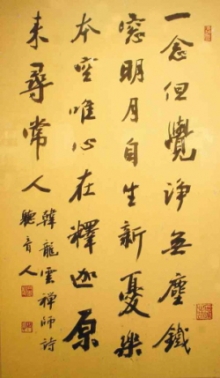 一念但覺淨無塵鐵
窓明月自生新憂樂
本空唯心在釋迦原
来尋常人
韓龍雲禪師詩